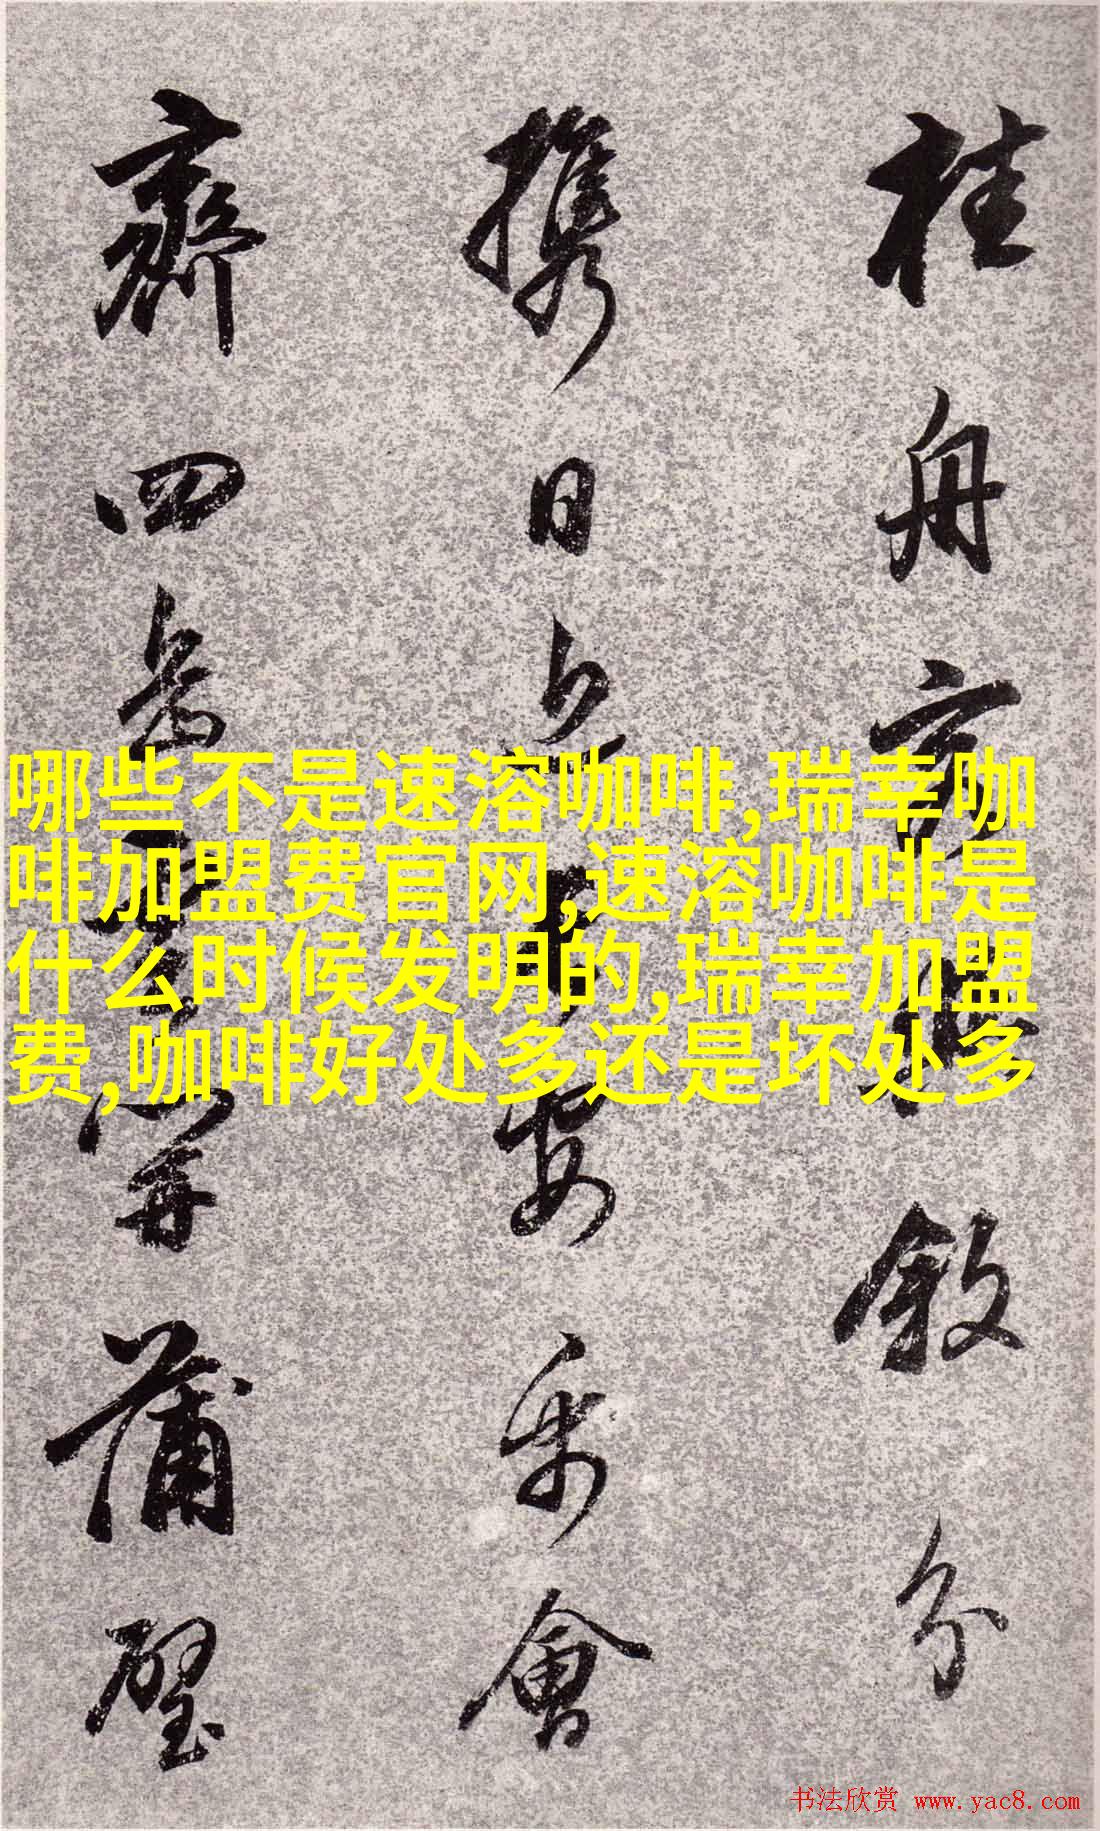 桂舟敘分
攜日樂會
齊四蒲璧
哪些不是速溶咖啡,瑞幸咖
啡加盟费官网,速溶咖啡是
什么时候发明的,瑞幸加盟
费,咖啡好处多还是坏处多
书法欣赏 www.yac8.com